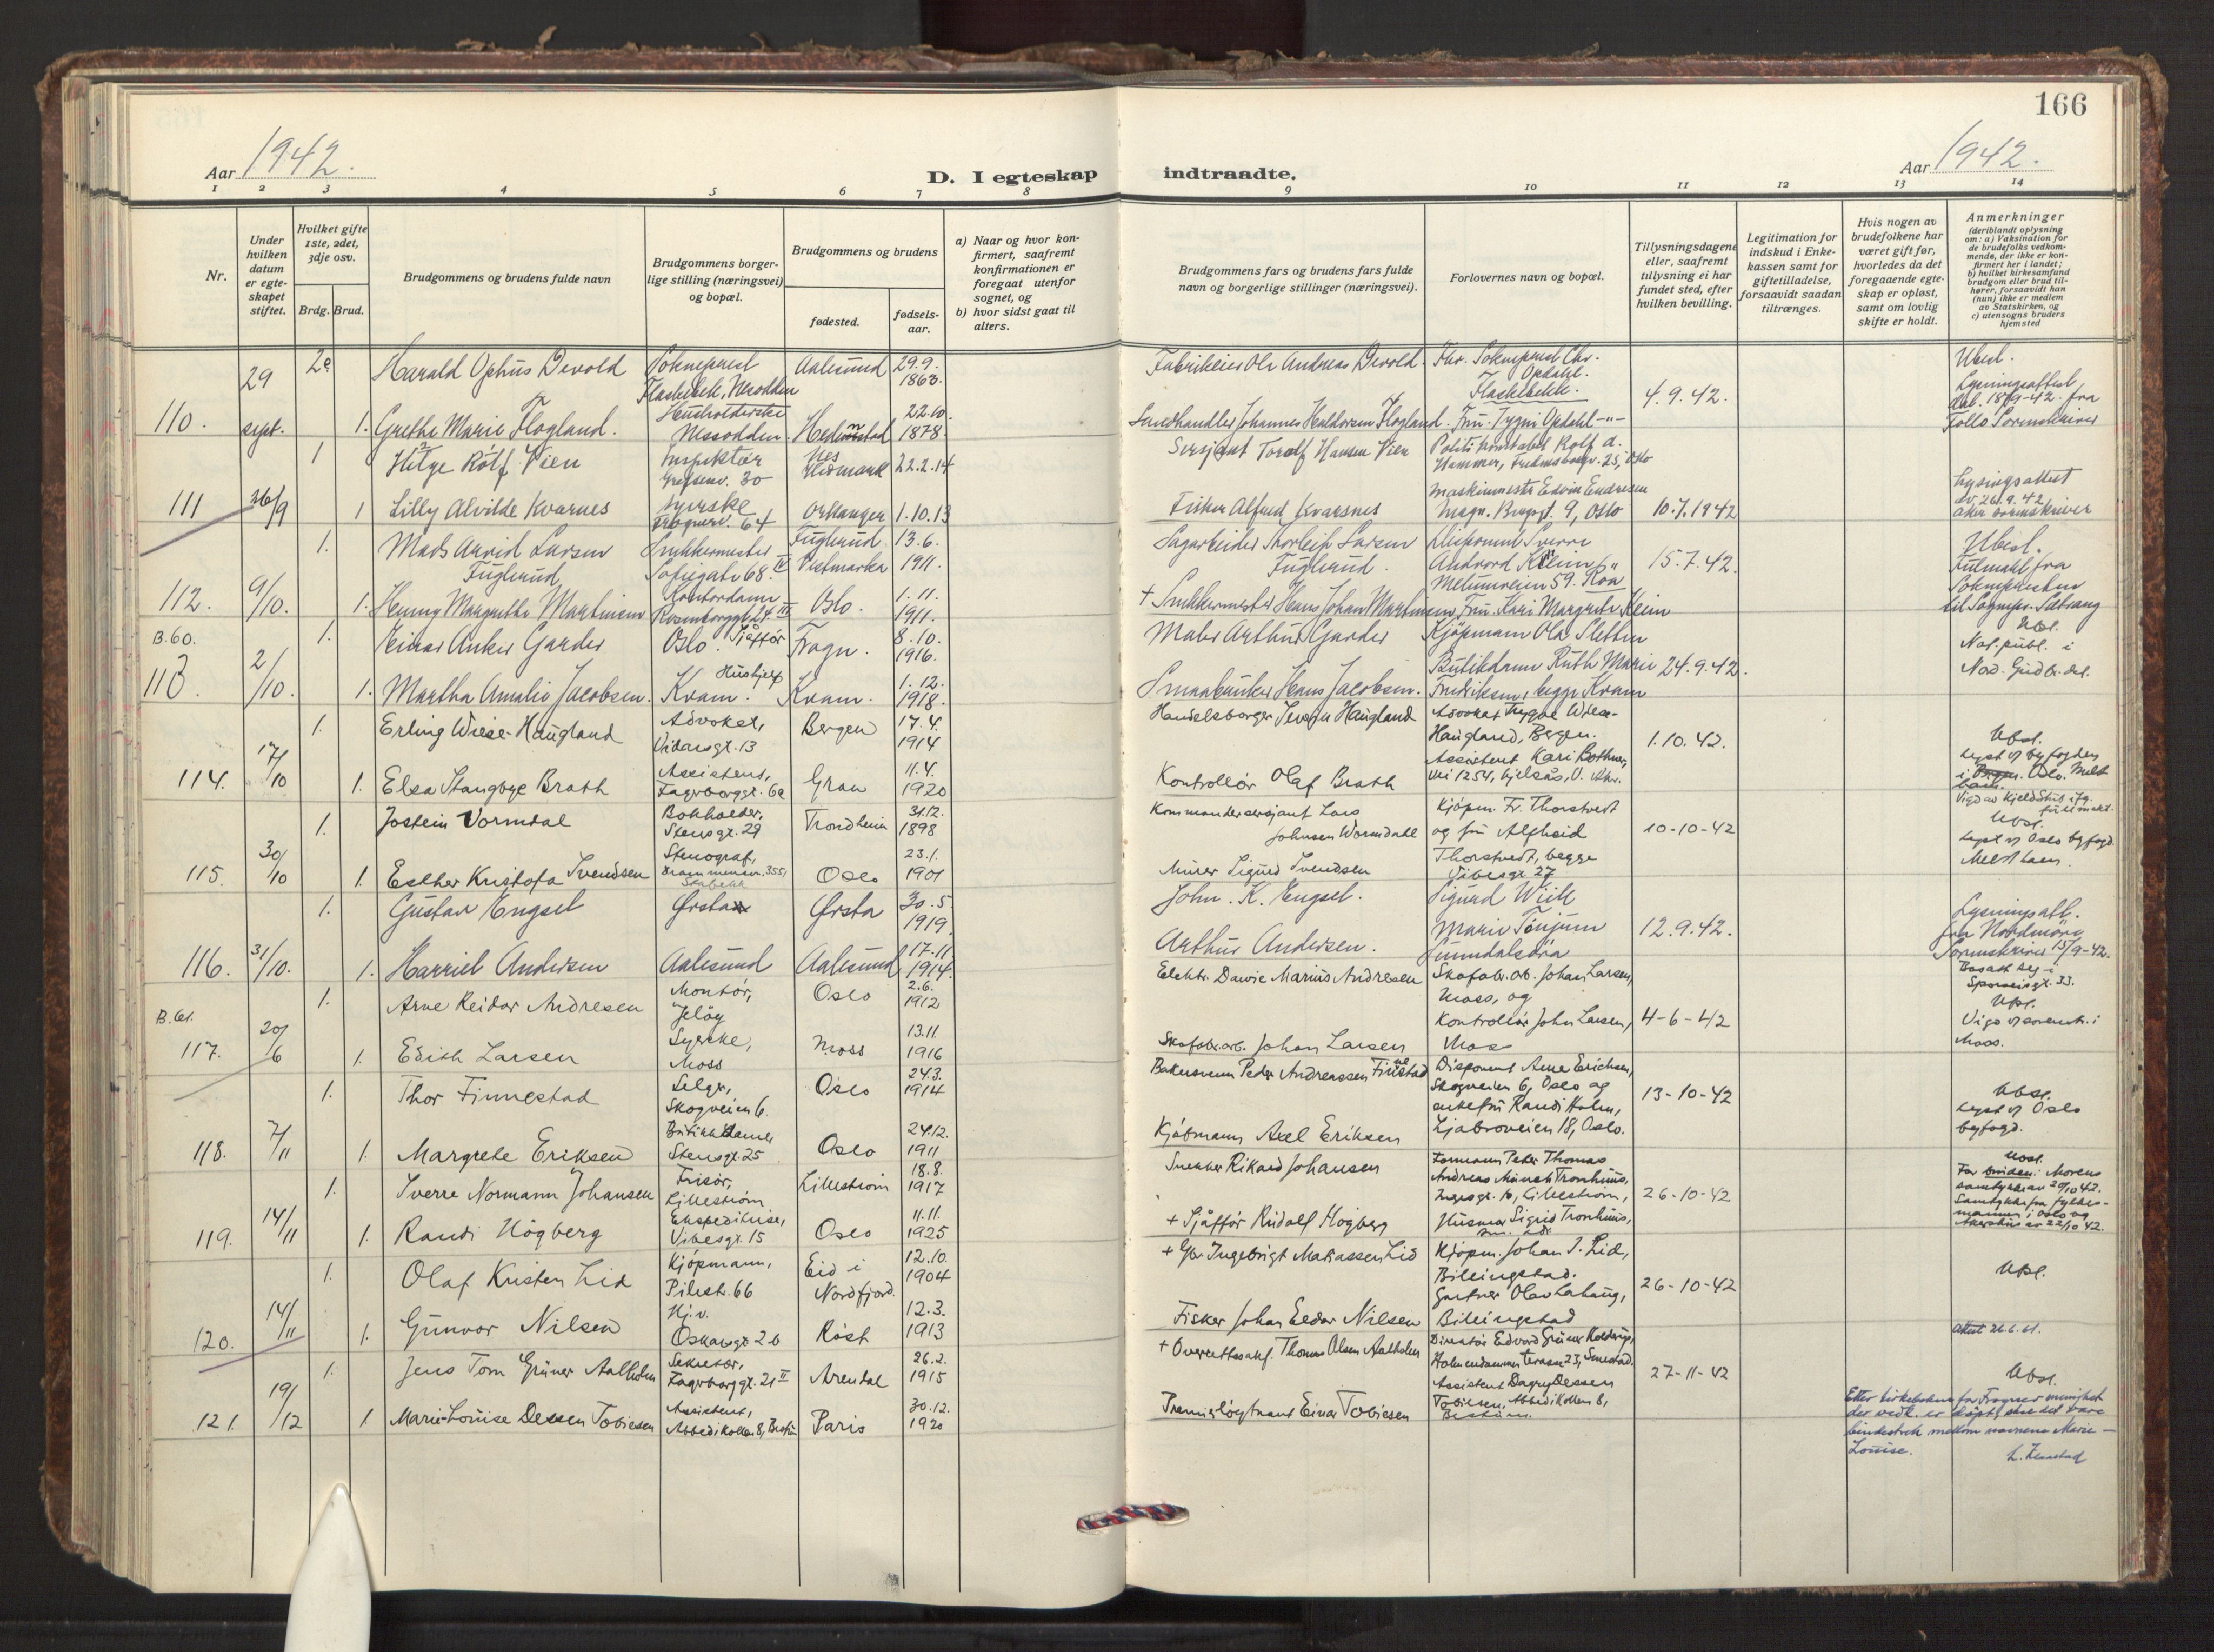 166
Aar 1942.
D. I egteskap indtraadte.
Aar 1942.
1 2 3 4 5 6 7 8 9 10 11 12 13 14
Nr.
Under hvilken datum er egte-skapet stiftet.
Hvilket gifte 1ste, 2det, 3dje osv.
Brdg. Brud.
Brudgommens og brudens fulde navn
Brudgommens borger-lige stilling (næringsvei) og bopæl.
Brudgommens og brudens
fødested.
fødsels-aar.
a) Naar og hvor kon-firmert, saafremt konfirmationen er foregaat utenfor sognet, og
b) hvor sidst gaat til alters.
Brudgommens fars og brudens fars fulde navn og borgerlige stillinger (næringsvei).
Forlovernes navn og bopæl.
Tillysningsdagene eller, saafremt tillysning ei har fundet sted, efter hvilken bevilling.
Legitimation for indskud i Enke-kassen samt for giftetilladelse, forsaavidt saadan tiltrænges.
Hvis nogen av brudefolkene har været gift før, hvorledes da det foregaaende egte-skap er opløst, samt om lovlig skifte er holdt.
Anmerkninger (deriblandt oplysning om: a) Vaksination for de brudefolks vedkom-mende, der ikke er kon-firmert her i landet; b) hvilket kirkesamfund brudgom eller brud til-hører, forsaavidt han (hun) ikke er medlem av Statskirken, og c) utensogns bruders hjemsted
110. 29 sept. 2e Harald Ophus Devold Sokneprest Flaskebekk, Nesodden Aalesund 29.9. 1863. Fabrikeier Ole Andreas Devold. Fhv. Sokneprest Chr. Opdahl. Flaskebekk. 4.9.42. Ubesl.
1. Grethe Marie Flogland. Husholderske Nesodden 22.10. 1878. Johannes Haldorsen Flogland. Fru Opdahl -"- Lysningsattest 18/9-42. fra Follo Sorenskriver
111 1 Rolf Vien Inspektør Grefsenv. 30 Nes Hedmark 22.2.14 Sersjant Toralf Hansen Vien Politikonstabel Rolf A. Hammer, 25, Oslo
1 Lilly Alvilde Kvarnes syerske 64 Orkanger 1.10.13 Fisker Alfred Kvarsnes Maskinmester Edvin Endresen 9, Oslo 10.7.1942 Lysingsattest av 26.9.42 Aker sorenskriver
112. 9/10. 1. Mads Arvid Larsen Fuglerud Snekkermester Sofiegate 68. IV Fuglerud Vestmarka 13.6. 1911. Sagarbeider Thorleif Larsen Fuglerud. Disponent Sverre 15.7.42. Ubesl.
1. Henny Margrethe Martinsen Kontordame Rosenborggt 24 III Oslo. 1.11. 1911. + Snekkermester Hans Johan Martinsen Fru Kari Margrete Klein fra Sokneprestен
B.60.
113. 2/10. 1. Einar Anker Garder Oslo. Sjåfør Frogn. 8.10. 1916. Maler Arthur Garder Kjøpmann Ola Sletten 24.9.42. Ubl.
1. Martha Amalie Jacobsen. Kvam. Hushjelp Kvam. 1.12. 1918. Smaabruker Hans Jacobsen. Butikdame Ruth Marie Fredriksen, begge Kvam Not. publ. i
114. 17/10 1. Erling Wiese-Haugland Advokat, Vidarsgt. 13 Bergen 17.4. 1914 Handelsborger Haugland Advokat Trygve Wiese-Haugland, Bergen. 1.10.42. Ubsl.
1. Elsa Stangbye Brath Assistent, Fagerborggt. 6a Gran 11.4. 1920 Kontrollør Olaf Brath Assistent Kari Bothner, Vei 1254, Kjelsås, V. Aker. Lyst v/ byfogden i Oslo.
115. 30/10 1. Jostein Vormdal Bokholder, Stensgt. 29 Trondheim 31.12. 1898 Kommandersersjant Lars Johnsen Wormdahl Kjøpm. Fr. Thorstvedt og fru Alfheid 10-10-42 Ubsl.
1. Esther Kristofa Svendsen Stenograf, Drammensv. 355, Stabekk Oslo 23.1. 1901 Murer Sigurd Svendsen Thorstvedt, begge Vibesgt 27 Lyst v/ Oslo byfogd.
116. 31/10. 1. Gustav Engset Ørsta Ørsta 30.5 1919. John. K. Engset. Sigurd Wiik 12.9.42. Lysningsatt.
1. Harriet Andersen Aalesund Aalesund 17.11 1914. Arthur Andersen. Marie Tønjum Sunndalsøra fra Nordmøre Sorenskriver 15/9-42.
B.61.
117. 20/6 1. Arne Reidar Andresen Montør, Jeløy Oslo 2.6. 1912 Elektr. Marius Andresen Skofabr.arb. Johan Larsen, Moss, og 4-6-42 Ubsl.
1. Edith Larsen Syerske, Moss Moss 13.11 1916 Skofabr.arb. Johan Larsen Kontrollør John Larsen, Moss Vigd v/ sorenskr. i Moss.
118. 7/11 1. Thor Finnestad Selger, Skogveien 6. Oslo 24.3. 1914 Bakersvenn Peder Andreassen Finnestad Disponent Arne Erichsen, Skogveien 6, Oslo og 13-10-42 Ubsl.
1. Margrete Eriksen Butikkdame, Stensgt. 25 Oslo 24.12. 1911 Kjøbmann Axel Eriksen enkefru Randi Holm, Ljabroveien 18, Oslo. Lyst v/ Oslo byfogd.
119. 14/11 1. Sverre Normann Johansen Frisør, Lillestrøm Lillestrøm 18.8. 1917 Snekker Rikard Johansen Formann Peter Thomas Andreas 16, Lillestrøm, 26-10-42 Ubsl.
1. Randi Högberg Ekspeditrise, Vibesgt. 15 Oslo 11.11. 1925 + Sjåffør Rudolf Högberg Husmor Sigrid For bruden: Morens samtykke av 20/10 42. Samtykke fra fylkesmannen i Oslo og Akershus av 22/10 42.
120. 14/11 1. Olaf Kristen Lid Kjøpmann, Pilestr. 66 Eid i Nordfjord. 12.10. 1904 + Gbr. Ingebrigt Matiassen Lid Kjøpm. Johan I. Lid, Billingstad. 26-10-42 Ubsl.
1. Gunvor Nilsen Hj.v. Oskarsgt. 26 Røst 12.3. 1913 Fisker Johan Eedor Nilsen Gartner Olav Lahaug, Billingstad
Attest 21.6.61.
121. 19/12 1. Jens Tom Grüner Aalholm Sekretær, Fagerborggt. 21 II Arendal 26.2. 1915 + Overrettssakf. Thomas Olsen Aalholm Direktør Edvard Grüner 23, Smestad. 27-11-42 Ubsl.
1. Marie-Louise Dessen Tobiesen Assistent, Abbedikollen 8, Bestun Paris 30.12. 1920 Premierløytnant Einar Tobiesen Assistent Dagny Dessen Tobiesen, Abbedikollen 8, Bestum.
Etter kirkeboken for Frogner menighet
bindestrek mellom navnene Marie-
Louise.